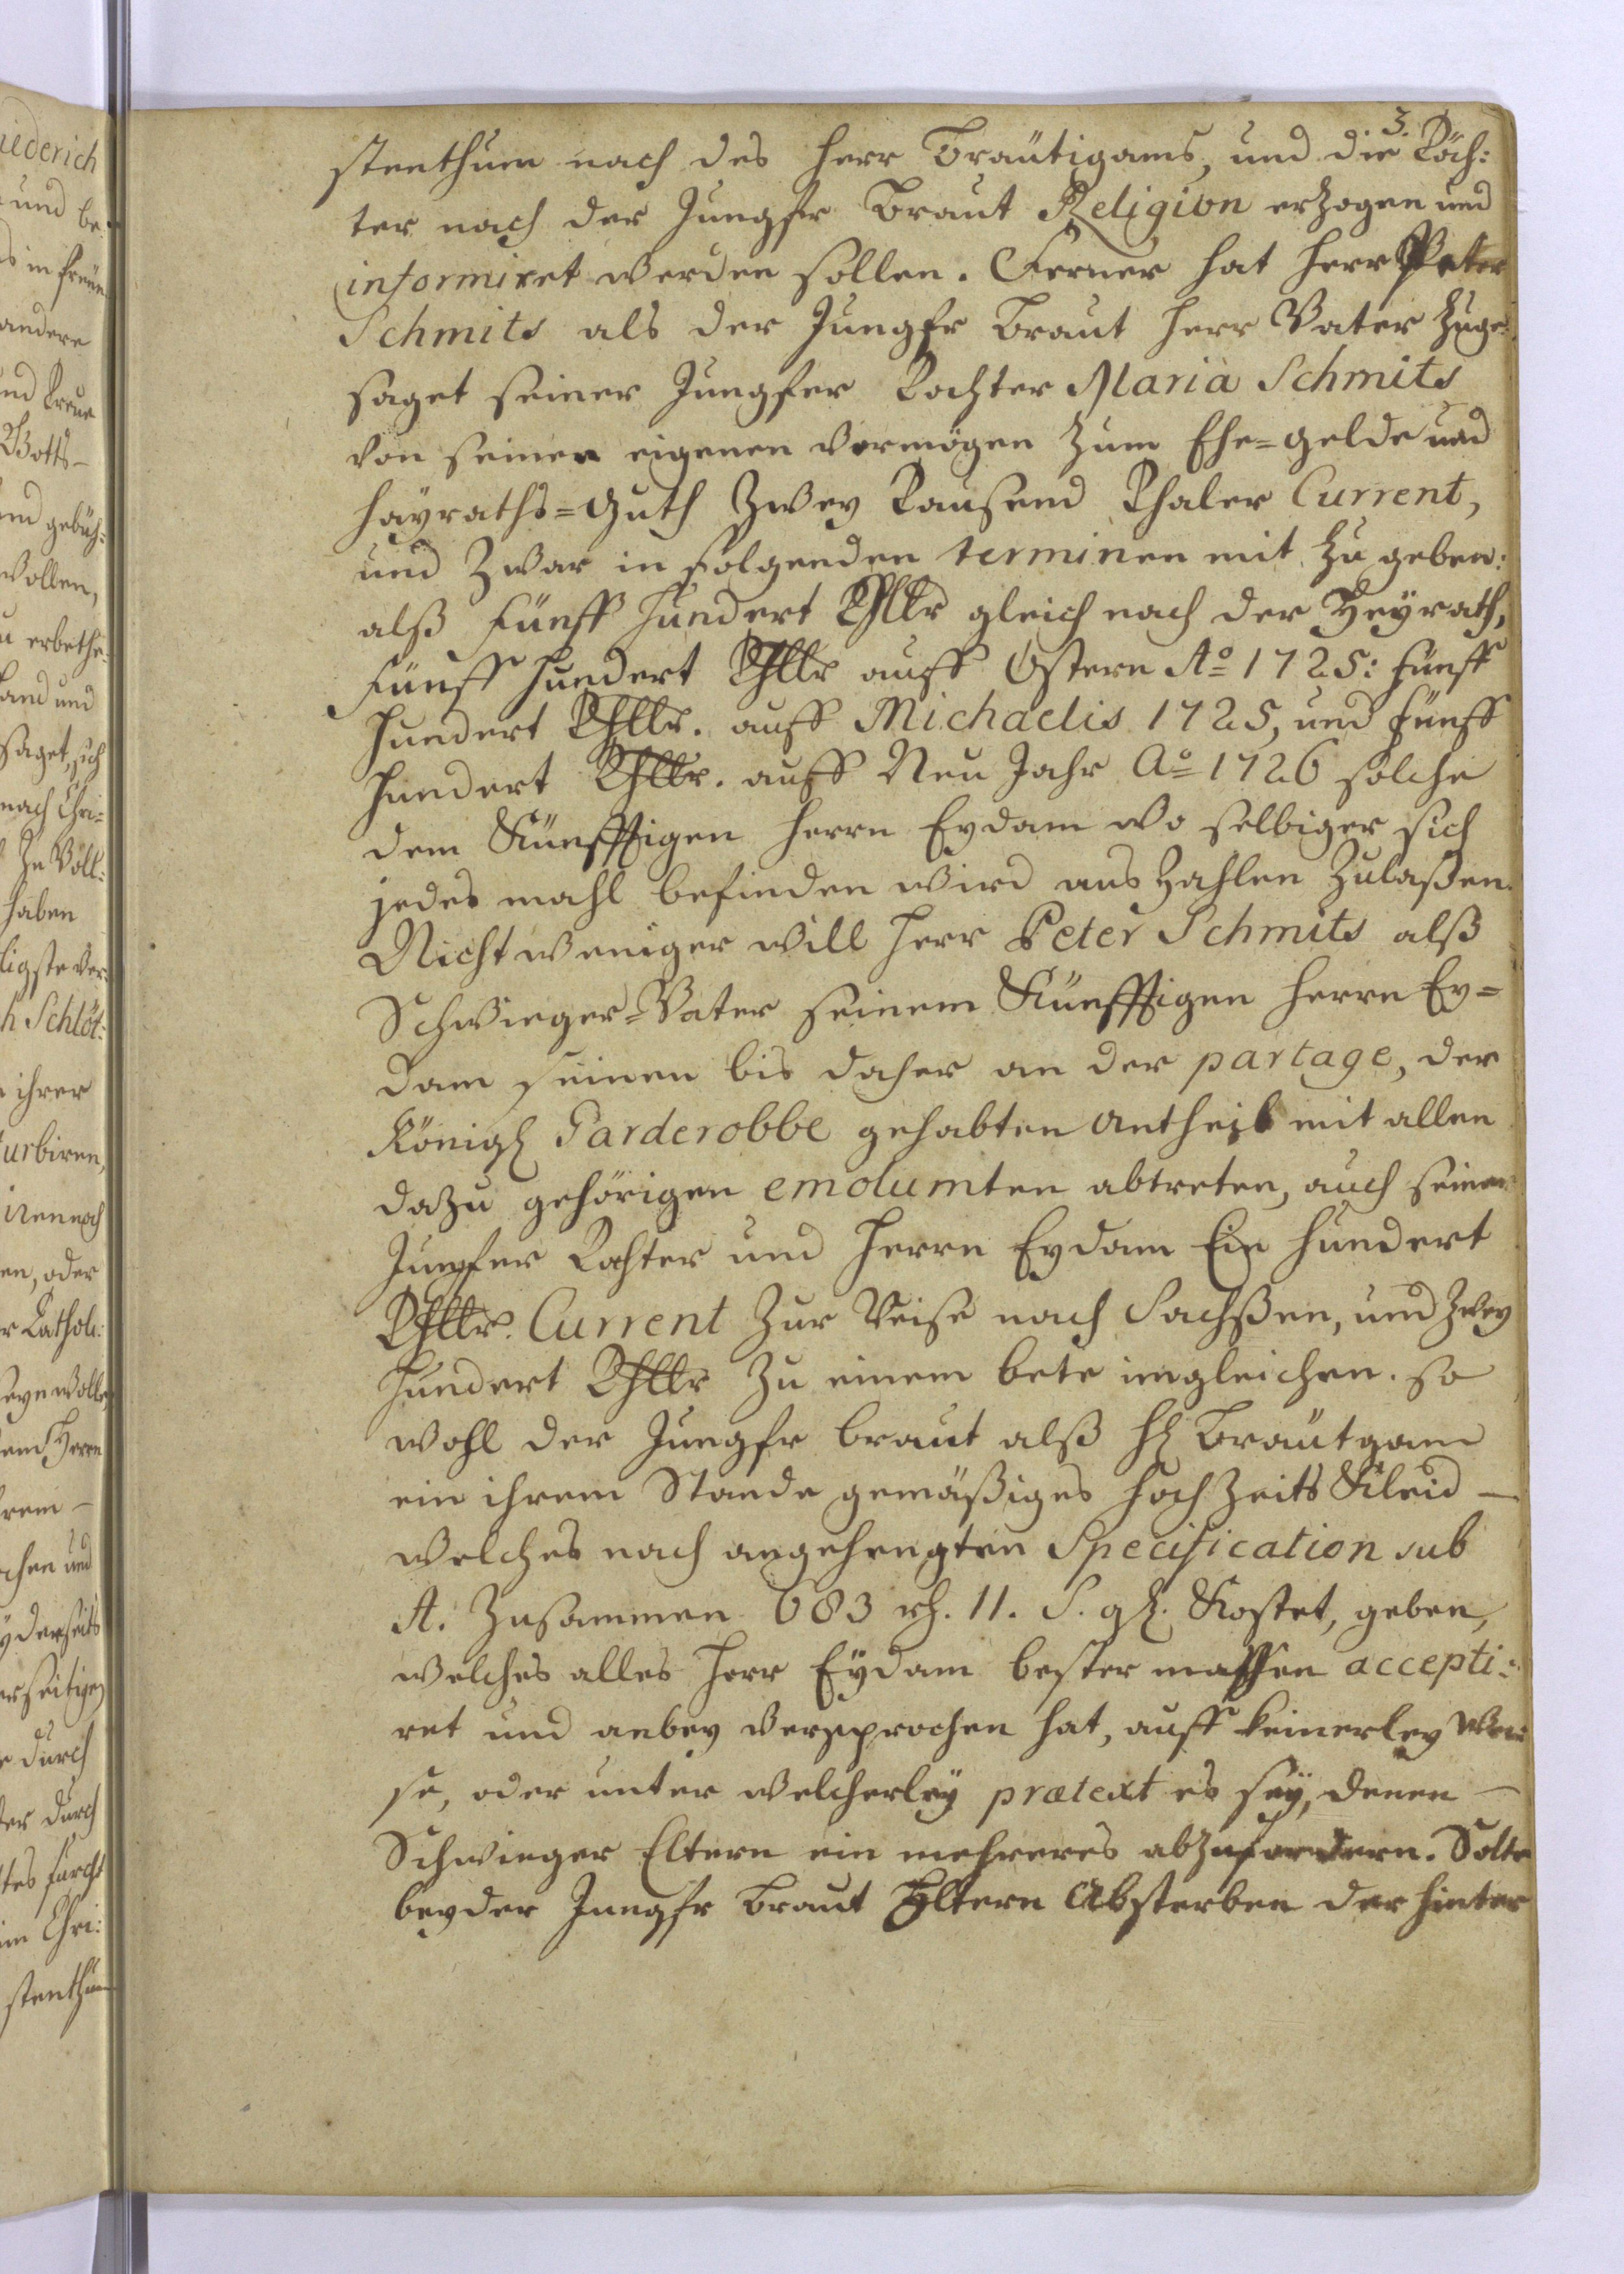 3.
stenthum nach des Herr Bräutigams, und die Töch:
ter nach der Jungfr Braut Religion erzogen und
informiret werden sollen. Ferner hat Herr Peter
Schmits als der Jungfr Braut Herr Vater zuge¬
saget seiner Jungfer Tochter Maria Schmits
von seinen eigenen vermögen zum Ehe=gelde und
Hayraths=Guth Zwey Tausend Thaler Current,
und zwar in folgenden terminen mit zu geben:
alß Fünff Hundert Thllr gleich nach der Heyrath,
Fünff Hundert Thllr auff Ostern Aº 1725: Fünff
Hundert Thllr. auff Michaelis 1725, und Fünff
Hundert Thllr. auff Neu Jahr Aº 1726 solche
dem Künfftigen Herrn Eydam wo selbiger sich
jedes mahl befinden wird aus zahlen zulaßen.
Nicht weniger will Herr Peter Schmits alß
Schwieger=Vater seinem Künfftigen Herrn Ey=
dam seinen bis daher an der partage, der
Königl Garderobbe gehabten Antheil mit allen
dazu gehörigen emolumten abtreten, auch seiner
Jungfer Tochter und Herrn Eydam Ein Hundert
Thllr. Current zur Reise nach Sachßen, und Zwey
Hundert Thllr zu einem bete imgleichen. so
wohl der Jungfr braut alß Hl Bräutgam
ein ihrem Stande gemäßiges Hochzeits Kleid —
welches nach angehengten Specification sub
A. zusammen 683 rh. 11. S. gl. Kostet, geben,
welches alles Herr Eydam bester massen accepti:
ret und anbey versprochen hat, auff keinerley Wei:
se, oder unter welcherley prætext es sey, denen —
Schwieger Eltern ein mehreres abzufordern. Solte
bey der Jungfr Braut Eltern Absterben der hinter